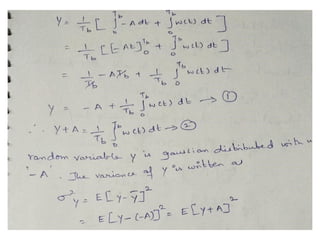 Y = 1/T_b [ ∫_0^{T_b} -A dt + ∫_0^{T_b} w(t) dt ]
= 1/T_b [ [-At]_0^{T_b} + ∫_0^{T_b} w(t) dt ]
= 1/T_b - A T_b + 1/T_b ∫_0^{T_b} w(t) dt
Y = -A + 1/T_b ∫_0^{T_b} w(t) dt → ①
∴ Y+A = 1/T_b ∫_0^{T_b} w(t) dt → ②
random variable y is gaussian distributed with
'-A'. The variance of y is written a
σ²_y = E[Y-ȳ]²
= E[Y-(-A)]² = E[Y+A]²